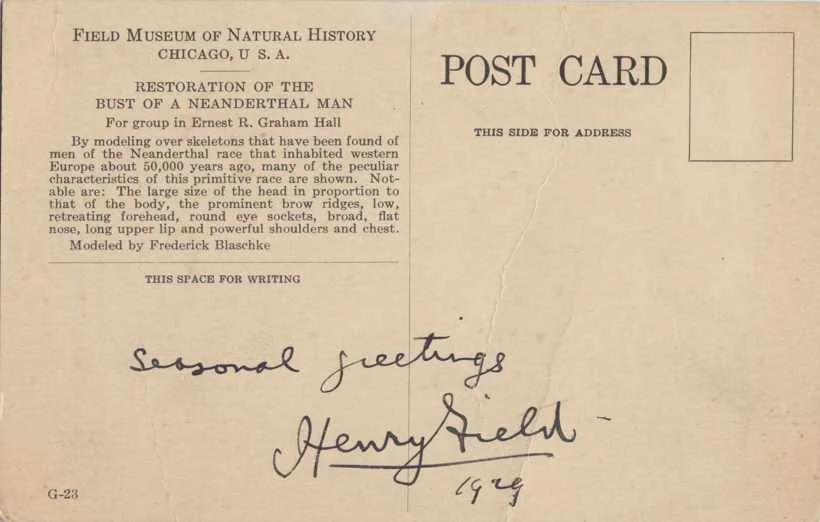 FIELD MUSEUM OF NATURAL HISTORY
CHICAGO, U S. A.
RESTORATION OF THE
BUST OF A NEANDERTHAL MAN
For group in Ernest R. Graham Hall
By modeling over skeletons that have been found of
men of the Neanderthal race that inhabited western
Europe about 50,000 years ago, many of the peculiar
characteristics of this primitive race are shown. Not-
able are: The large size of the head in proportion to
that of the body, the prominent brow ridges, low,
retreating forehead, round eye sockets, broad, flat
nose, long upper lip and powerful shoulders and chest.
Modeled by Frederick Blaschke
THIS SPACE FOR WRITING
POST CARD
THIS SIDE FOR ADDRESS
Seasonal greetings
Henry Field
1929
G-23